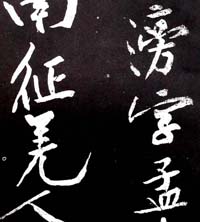 滂字孟
南征羌人